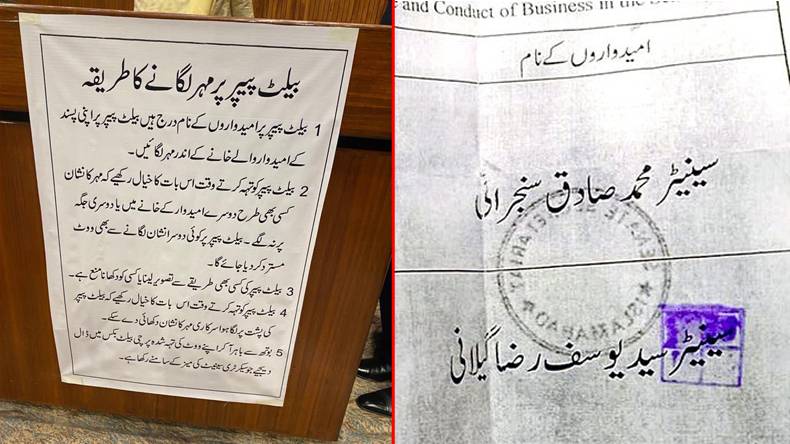 بیلٹ پیپر پر مہر لگانے کا طریقہ
1 بیلٹ پیپر پر امیدواروں کے نام درج ہیں بیلٹ پیپر پر اپنی پسند
کے امیدوار والے خانے کے اندر مہر لگائیں۔
2 بیلٹ پیپر کو تہہ کرتے وقت اس بات کا خیال رکھیے کہ مہر کا نشان
کسی بھی طرح دوسرے امیدوار کے خانے میں یا دوسری جگہ
پر نہ لگے۔ بیلٹ پیپر پر کوئی دوسرا نشان لگانے سے بھی ووٹ
مسترد کر دیا جائے گا۔
3 بیلٹ پیپر کی کسی بھی طریقے سے تصویر لینا یا کسی کو دکھانا منع ہے۔
4 بیلٹ پیپر کو تہہ کرتے وقت اس بات کا خیال رکھیے کہ بیلٹ پیپر
کی پشت پر لگا ہوا سرکاری مہر کا نشان دکھائی دے سکے۔
5 بوتھ سے باہر آ کر اپنے ووٹ کی تہہ شدہ پرچی بیلٹ بکس میں ڈال
دیجیے جو سیکرٹری سینیٹ کی میز کے سامنے رکھا ہے۔
and Conduct of Business in the
امیدواروں کے نام
سینیٹر محمد صادق سنجرانی
SENATE SECRETARIAT
ISLAMABAD
سینیٹر سید یوسف رضا گیلانی